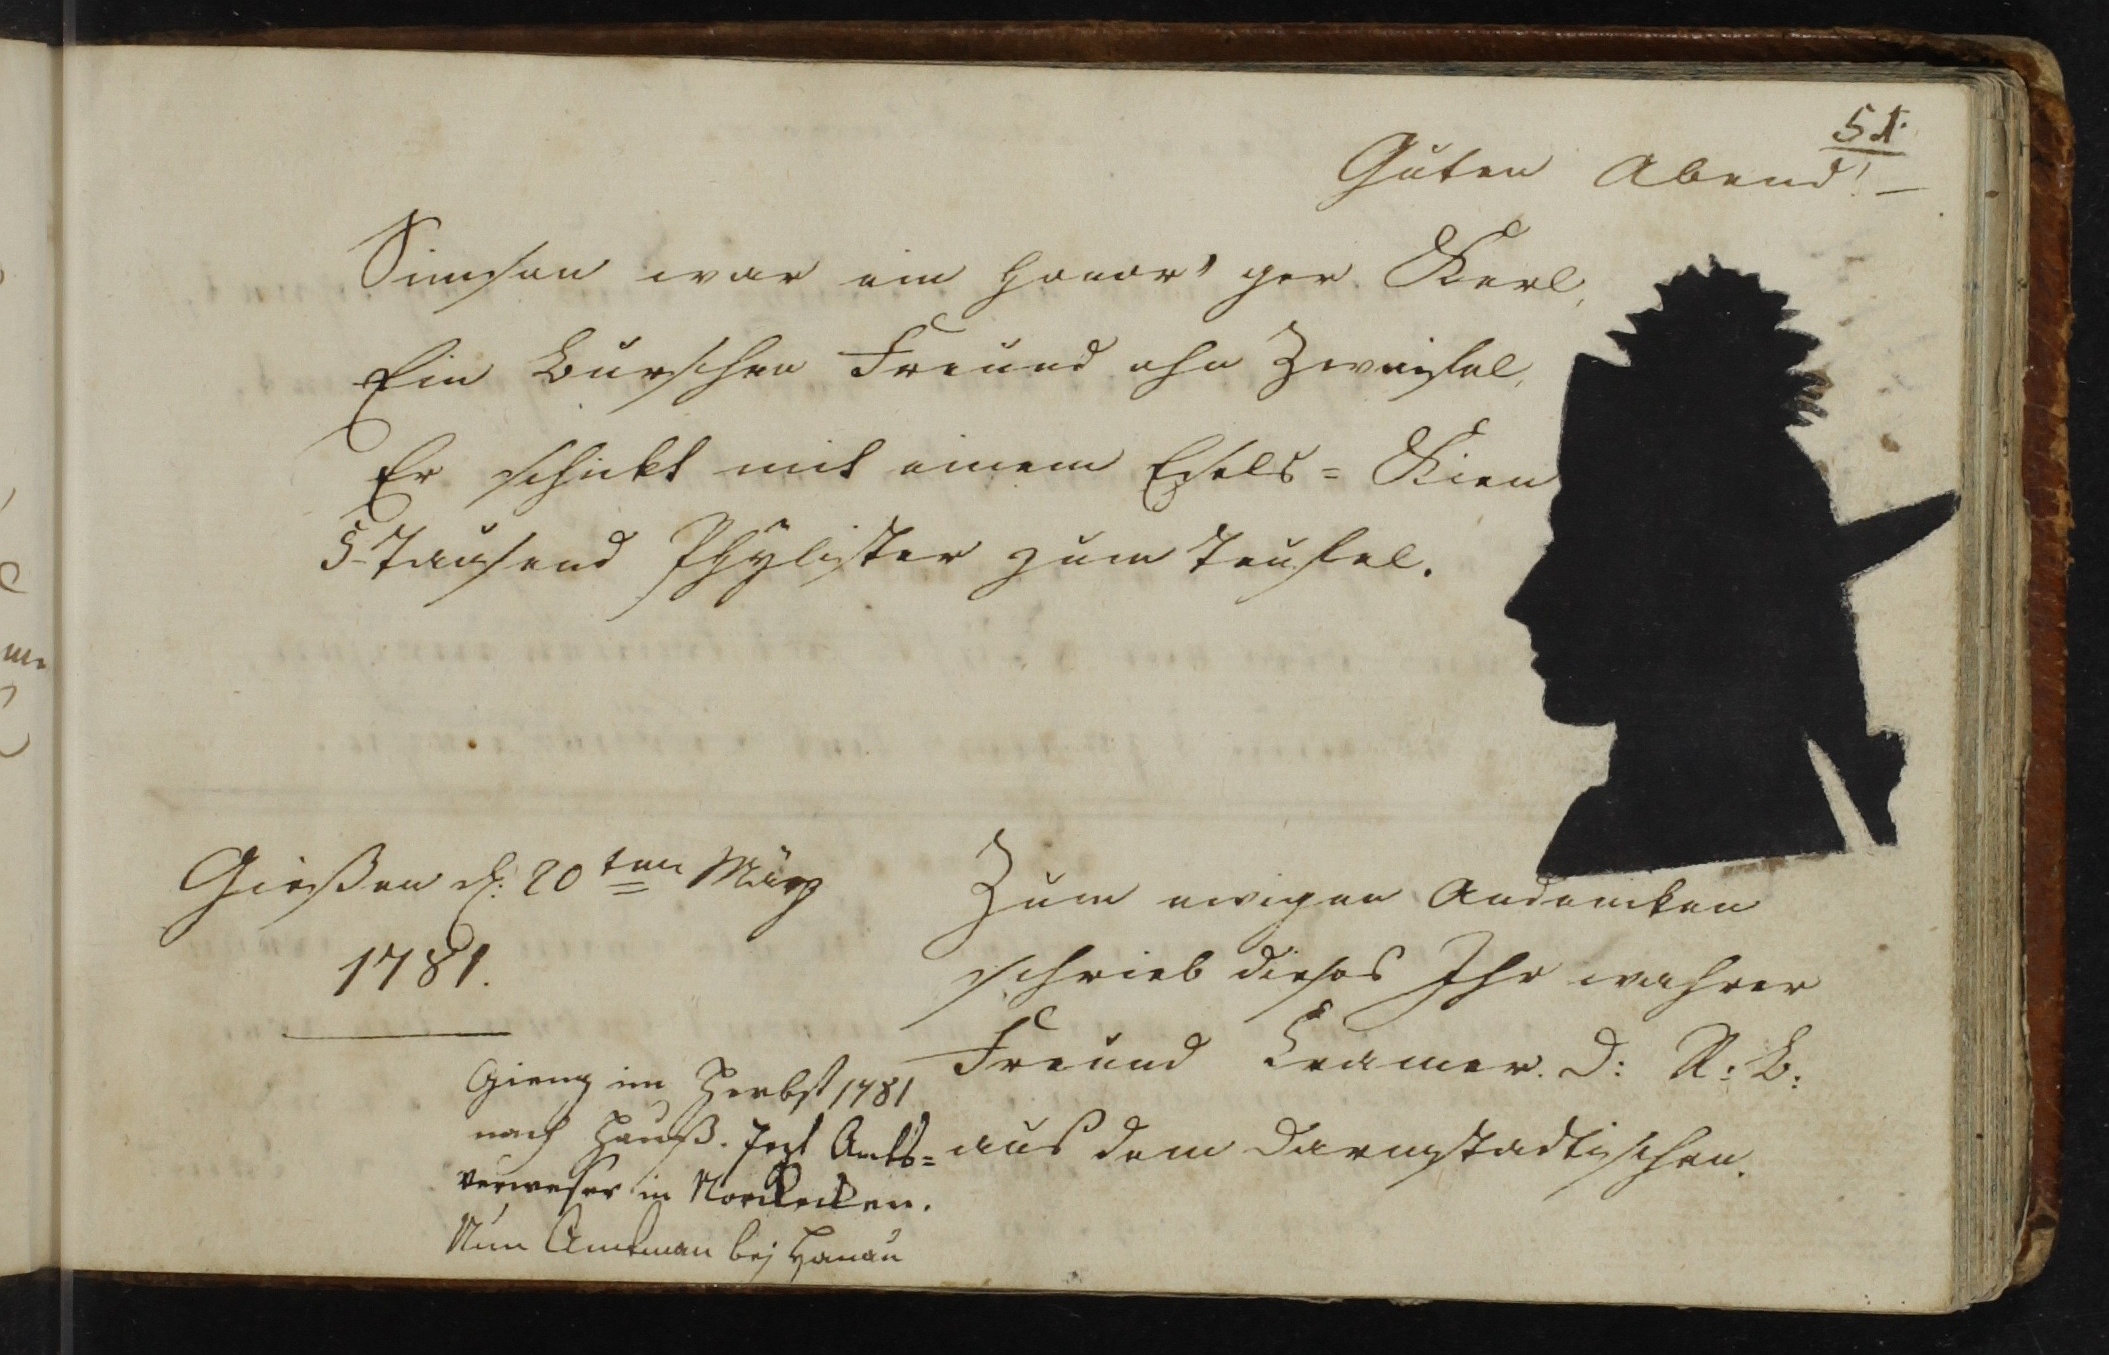 51.
Guten Abend! —
Simson war ein honor'ger Kerl,
Ein Burschen Freund ohn Zweifel,
Er schickt mit einem Esels= Kien
5-Tausend Phylister zum Teufel.
Gießen d. 20ten März
1781.
Zum ewigen Andencken
schrieb dieses Ihr wahrer
Freund Cramer. D: R: B:
aus dem Darmstadtischen.
Gieng im Herbst 1781
nach Hauß. Jezt Amts=
verweser in Nordecken.
Nun Amtman bej Hanau